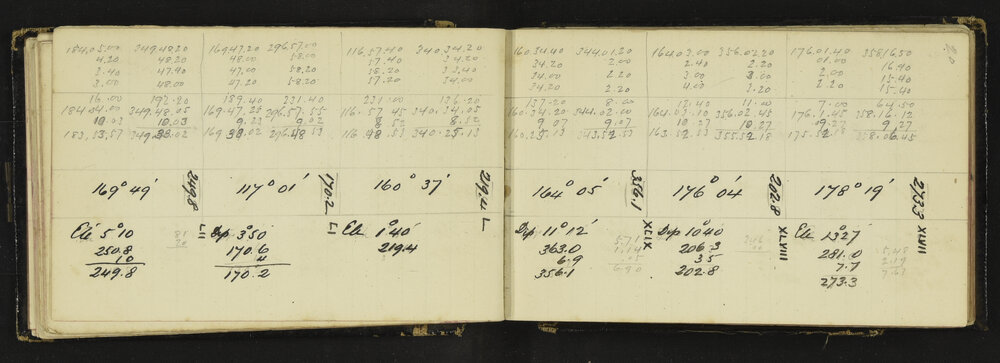 184.05.00 349.48.20 169.47.20 296.57.00 116.57.40 340.34.20
4.20 48.20 48.00 58.00 57.40 34.20
3.40 47.40 47.00 58.20 58.20 33.40
3.00 48.00 47.20 58.20 57.20 34.00
16.00 192.20 189.40 231.40 231.00 136.20
184.04.00 349.48.05 169.47.25 296.57.55 116.57.45 340.34.05
10.03 10.03 9.23 9.02 8.52 8.52
183.53.57 349.38.02 169.38.02 296.48.53 116.48.53 340.25.13
169° 49' 249.8 117° 01' 170.2 160° 37' 219.4
Ele 5° 10 LII Dep 3°50 LI Ele 1°40 L
250.8 170.6 219.4
10 4
249.8 170.2
160.34.40 344.01.20 164.03.00 356.02.20 176.01.40 358.16.50
34.20 2.00 2.40 2.20 01.00 16.40
34.00 2.20 3.00 3.00 2.00 15.40
34.20 2.20 4.00 2.20 2.20 15.40
137.20 8.00 12.40 11.00 7.00 64.50
160.34.20 344.02.00 164.03.10 356.02.45 176.1.45 358.16.12
9.07 9.07 10.27 10.27 9.27 9.27
160.25.13 343.52.53 163.52.53 355.52.18 175.52.18 358.06.45
164° 05' 356.1 176° 04' 202.8 178° 19' 273.3
Dep 11° 12' XLIX Dep 10°40 XLVIII Ele 13°27' XLVII
363.0 206.3 281.0
6.9 35 7.7
356.1 202.8 273.3
6.90
5.48
2.19